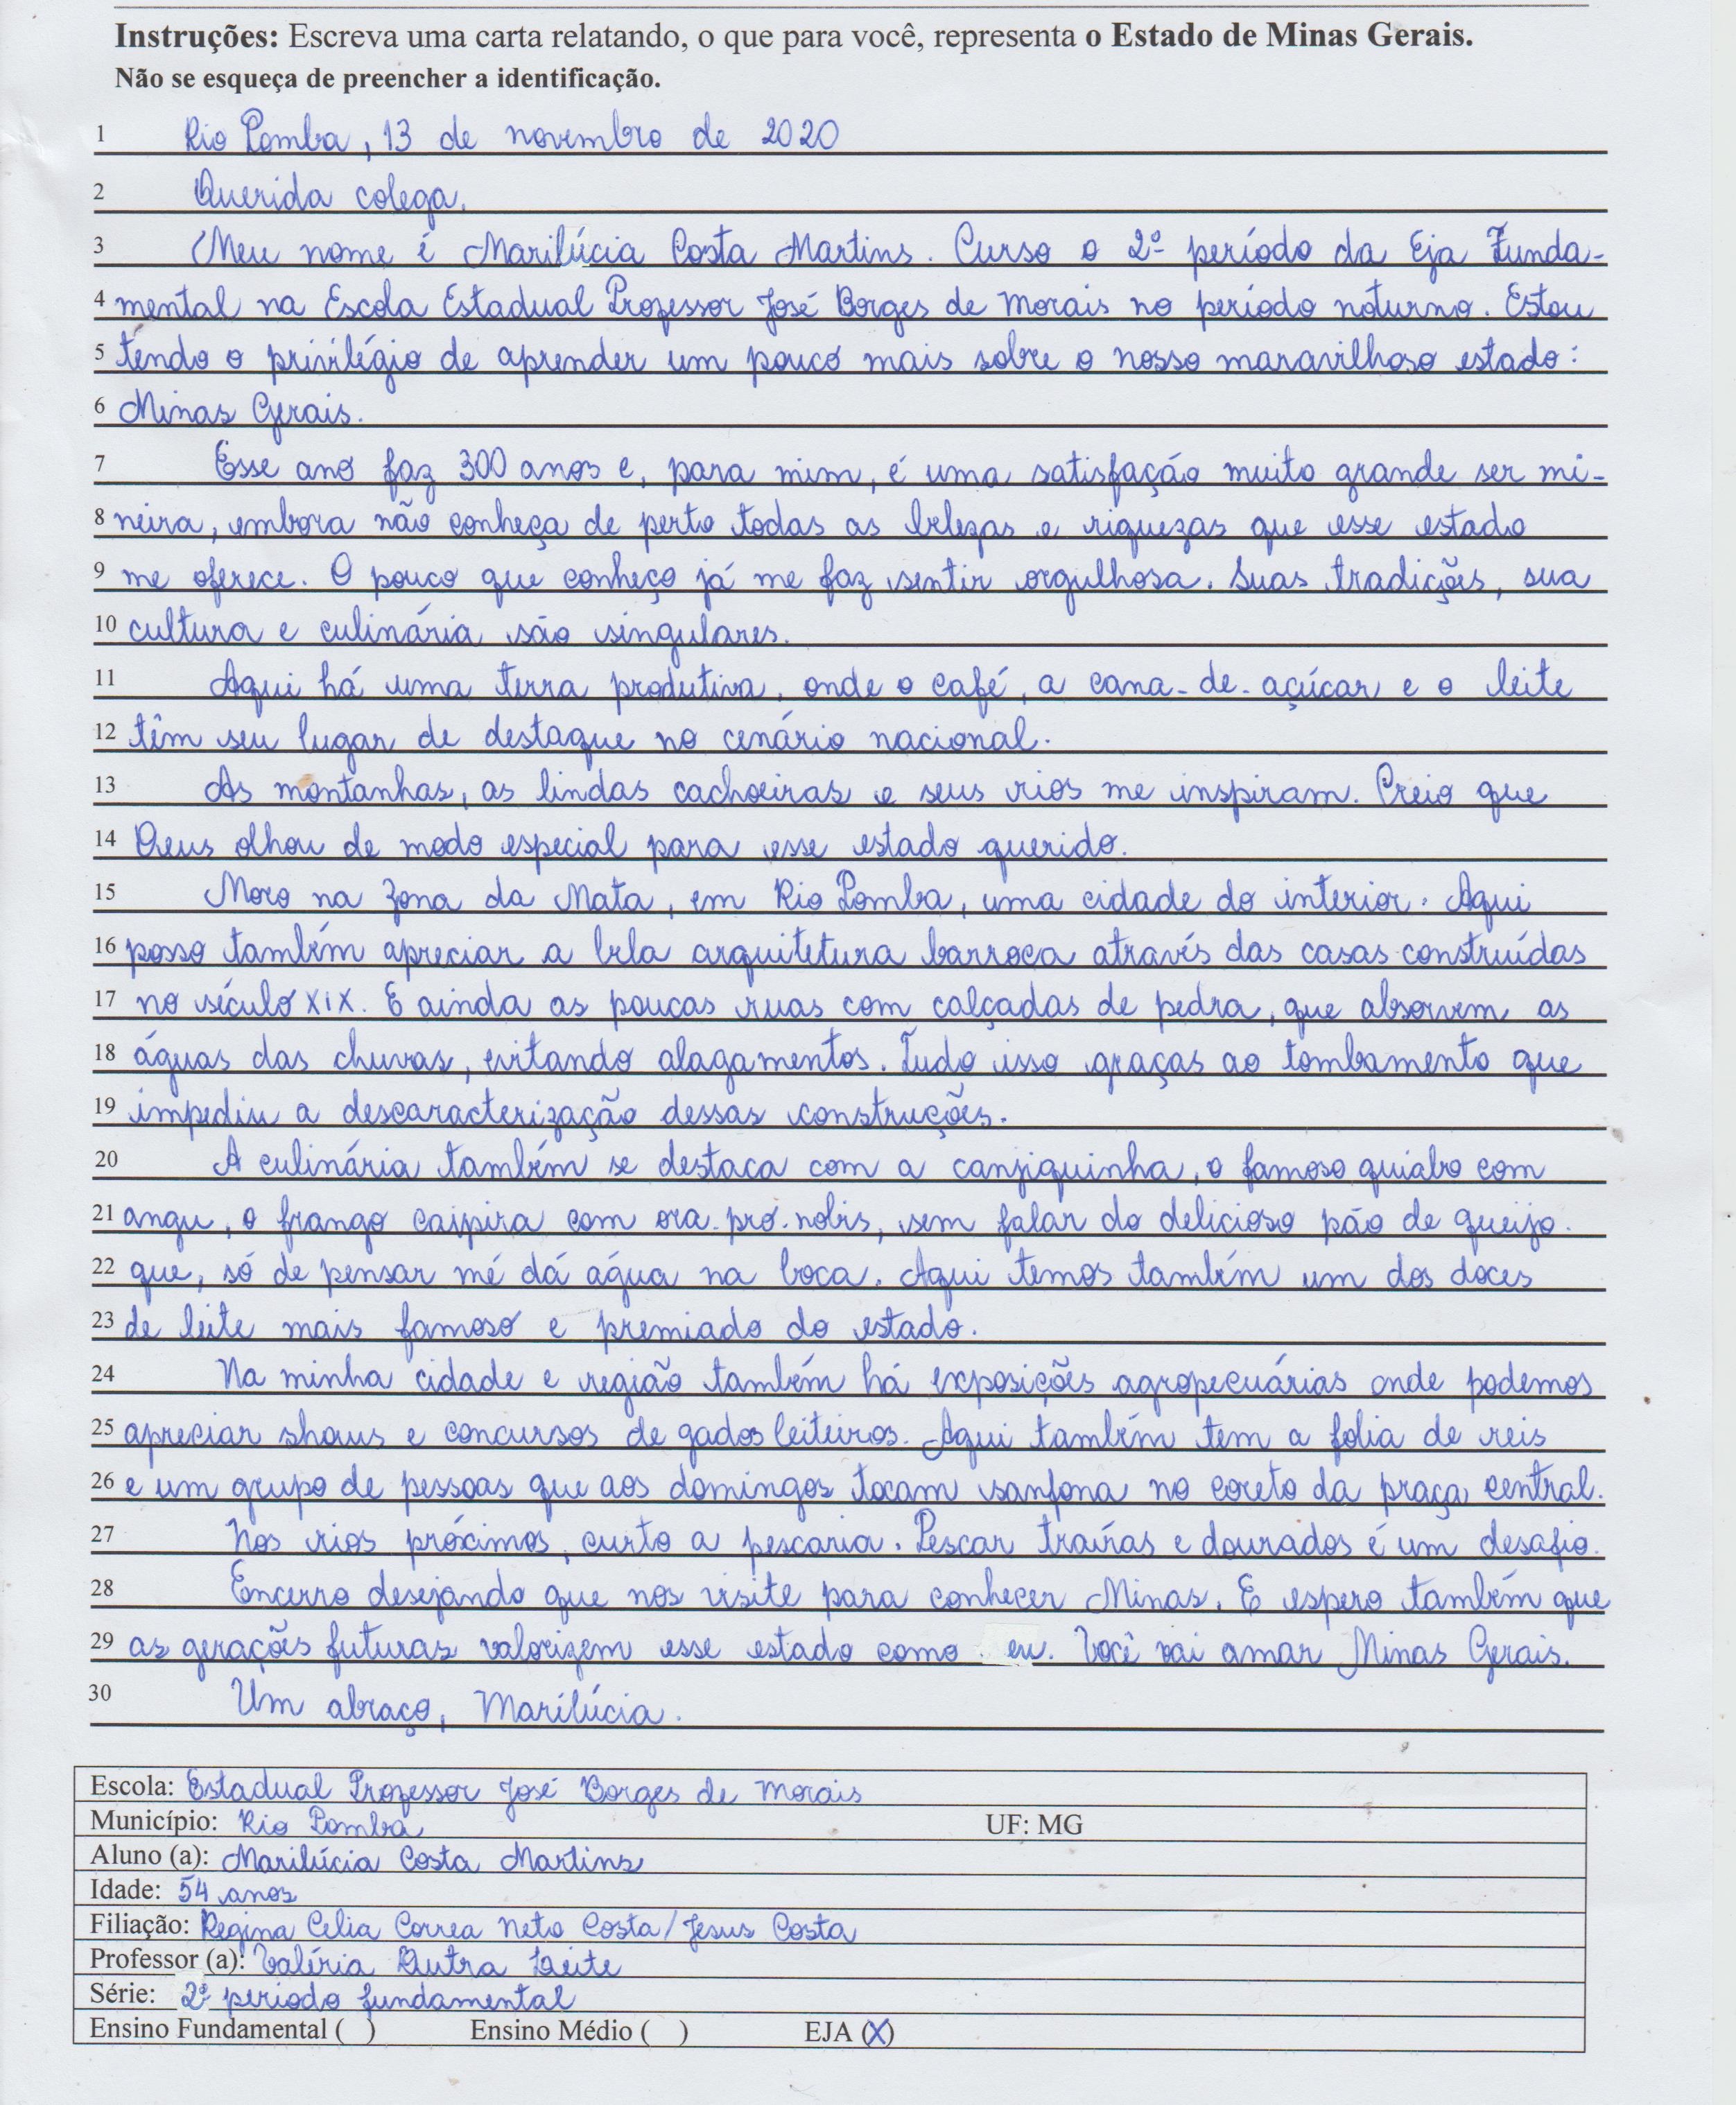 Instruções: Escreva uma carta relatando, o que para você, representa o Estado de Minas Gerais.
Não se esqueça de preencher a identificação.
1 Rio Pomba, 13 de novembro de 2020
2 Querida colega,
3 Meu nome é Marilúcia Costa Martins. Curso o 2º período da Eja Funda-
4 mental na Escola Estadual Professor José Borges de Morais no período noturno. Estou
5 tendo o privilégio de aprender um pouco mais sobre o nosso maravilhoso estado:
6 Minas Gerais.
7 Esse ano faz 300 anos e, para mim, é uma satisfação muito grande ser mi-
8 neira, embora não conheça de perto todas as belezas e riquezas que esse estado
9 me oferece. O pouco que conheço já me faz sentir orgulhosa. Suas tradições, sua
10 cultura e culinária são singulares.
11 Aqui há uma terra produtiva, onde o café, a cana-de-açúcar e o leite
12 têm seu lugar de destaque no cenário nacional.
13 As montanhas, as lindas cachoeiras e seus rios me inspiram. Creio que
14 Deus olhou de modo especial para esse estado querido.
15 Moro na Zona da Mata, em Rio Pomba, uma cidade do interior. Aqui
16 posso também apreciar a bela arquitetura barroca através das casas construídas
17 no século XIX. E ainda as poucas ruas com calçadas de pedra, que absorvem as
18 águas das chuvas, evitando alagamentos. Tudo isso graças ao tombamento que
19 impediu a descaracterização dessas construções.
20 A culinária também se destaca com a canjiquinha, o famoso quiabo com
21 angu, o frango caipira com ora-pró-nobis, sem falar do delicioso pão de queijo
22 que, só de pensar me dá água na boca. Aqui temos também um dos doces
23 de leite mais famoso e premiado do estado.
24 Na minha cidade e região também há exposições agropecuárias onde podemos
25 apreciar shows e concursos de gados leiteiros. Aqui também tem a folia de reis
26 e um grupo de pessoas que aos domingos tocam sanfona no coreto da praça central.
27 Nos rios próximos, curto a pescaria. Pescar traíras e dourados é um desafio.
28 Encerro desejando que nos visite para conhecer Minas. E espero também que
29 as gerações futuras valorizem esse estado como eu. Você vai amar Minas Gerais.
30 Um abraço, Marilúcia.
Escola: Estadual Professor José Borges de Morais
Município: Rio Pomba UF: MG
Aluno (a): Marilúcia Costa Martins
Idade: 54 anos
Filiação: Regina Celia Correa Neto Costa/Jesus Costa
Professor (a): Valéria Dutra Leite
Série: 2º período fundamental
Ensino Fundamental ( ) Ensino Médio ( ) EJA (X)